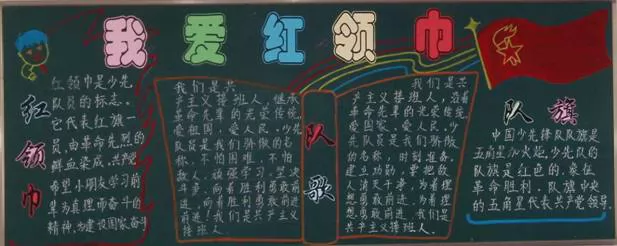 我爱红领巾
红领巾
红领巾是少先
队员的标志。
它代表红旗一
角，由革命先烈的
鲜血染成。共产党
希望小朋友学习前
辈为真理而奋斗的
精神，为建设国家奋斗
我们是共
产主义接班人，继承
革命先辈的光荣传统，
爱祖国，爱人民，少先
队员是我们骄傲的名
称，不怕困难，不怕
敌人，顽强学习，坚决
斗争，向着胜利勇敢前进，
向着胜利勇敢前进
前进，我们是共产主义
接班人。
队歌
我们是共
产主义接班人，沿着
革命先辈的光荣传统，
爱国家，爱人民，少
先队员是我们骄傲
的名称，时刻准备，
建立功勋，要把敌
人消灭干净，为着理
想勇敢前进，为着理
想勇敢前进，我们是
共产主义接班人。
队旗
中国少先锋队队旗是
五角星加火炬。少先队的
队旗是红色的，象征
革命胜利。队旗中央
的五角星代表共产党领导